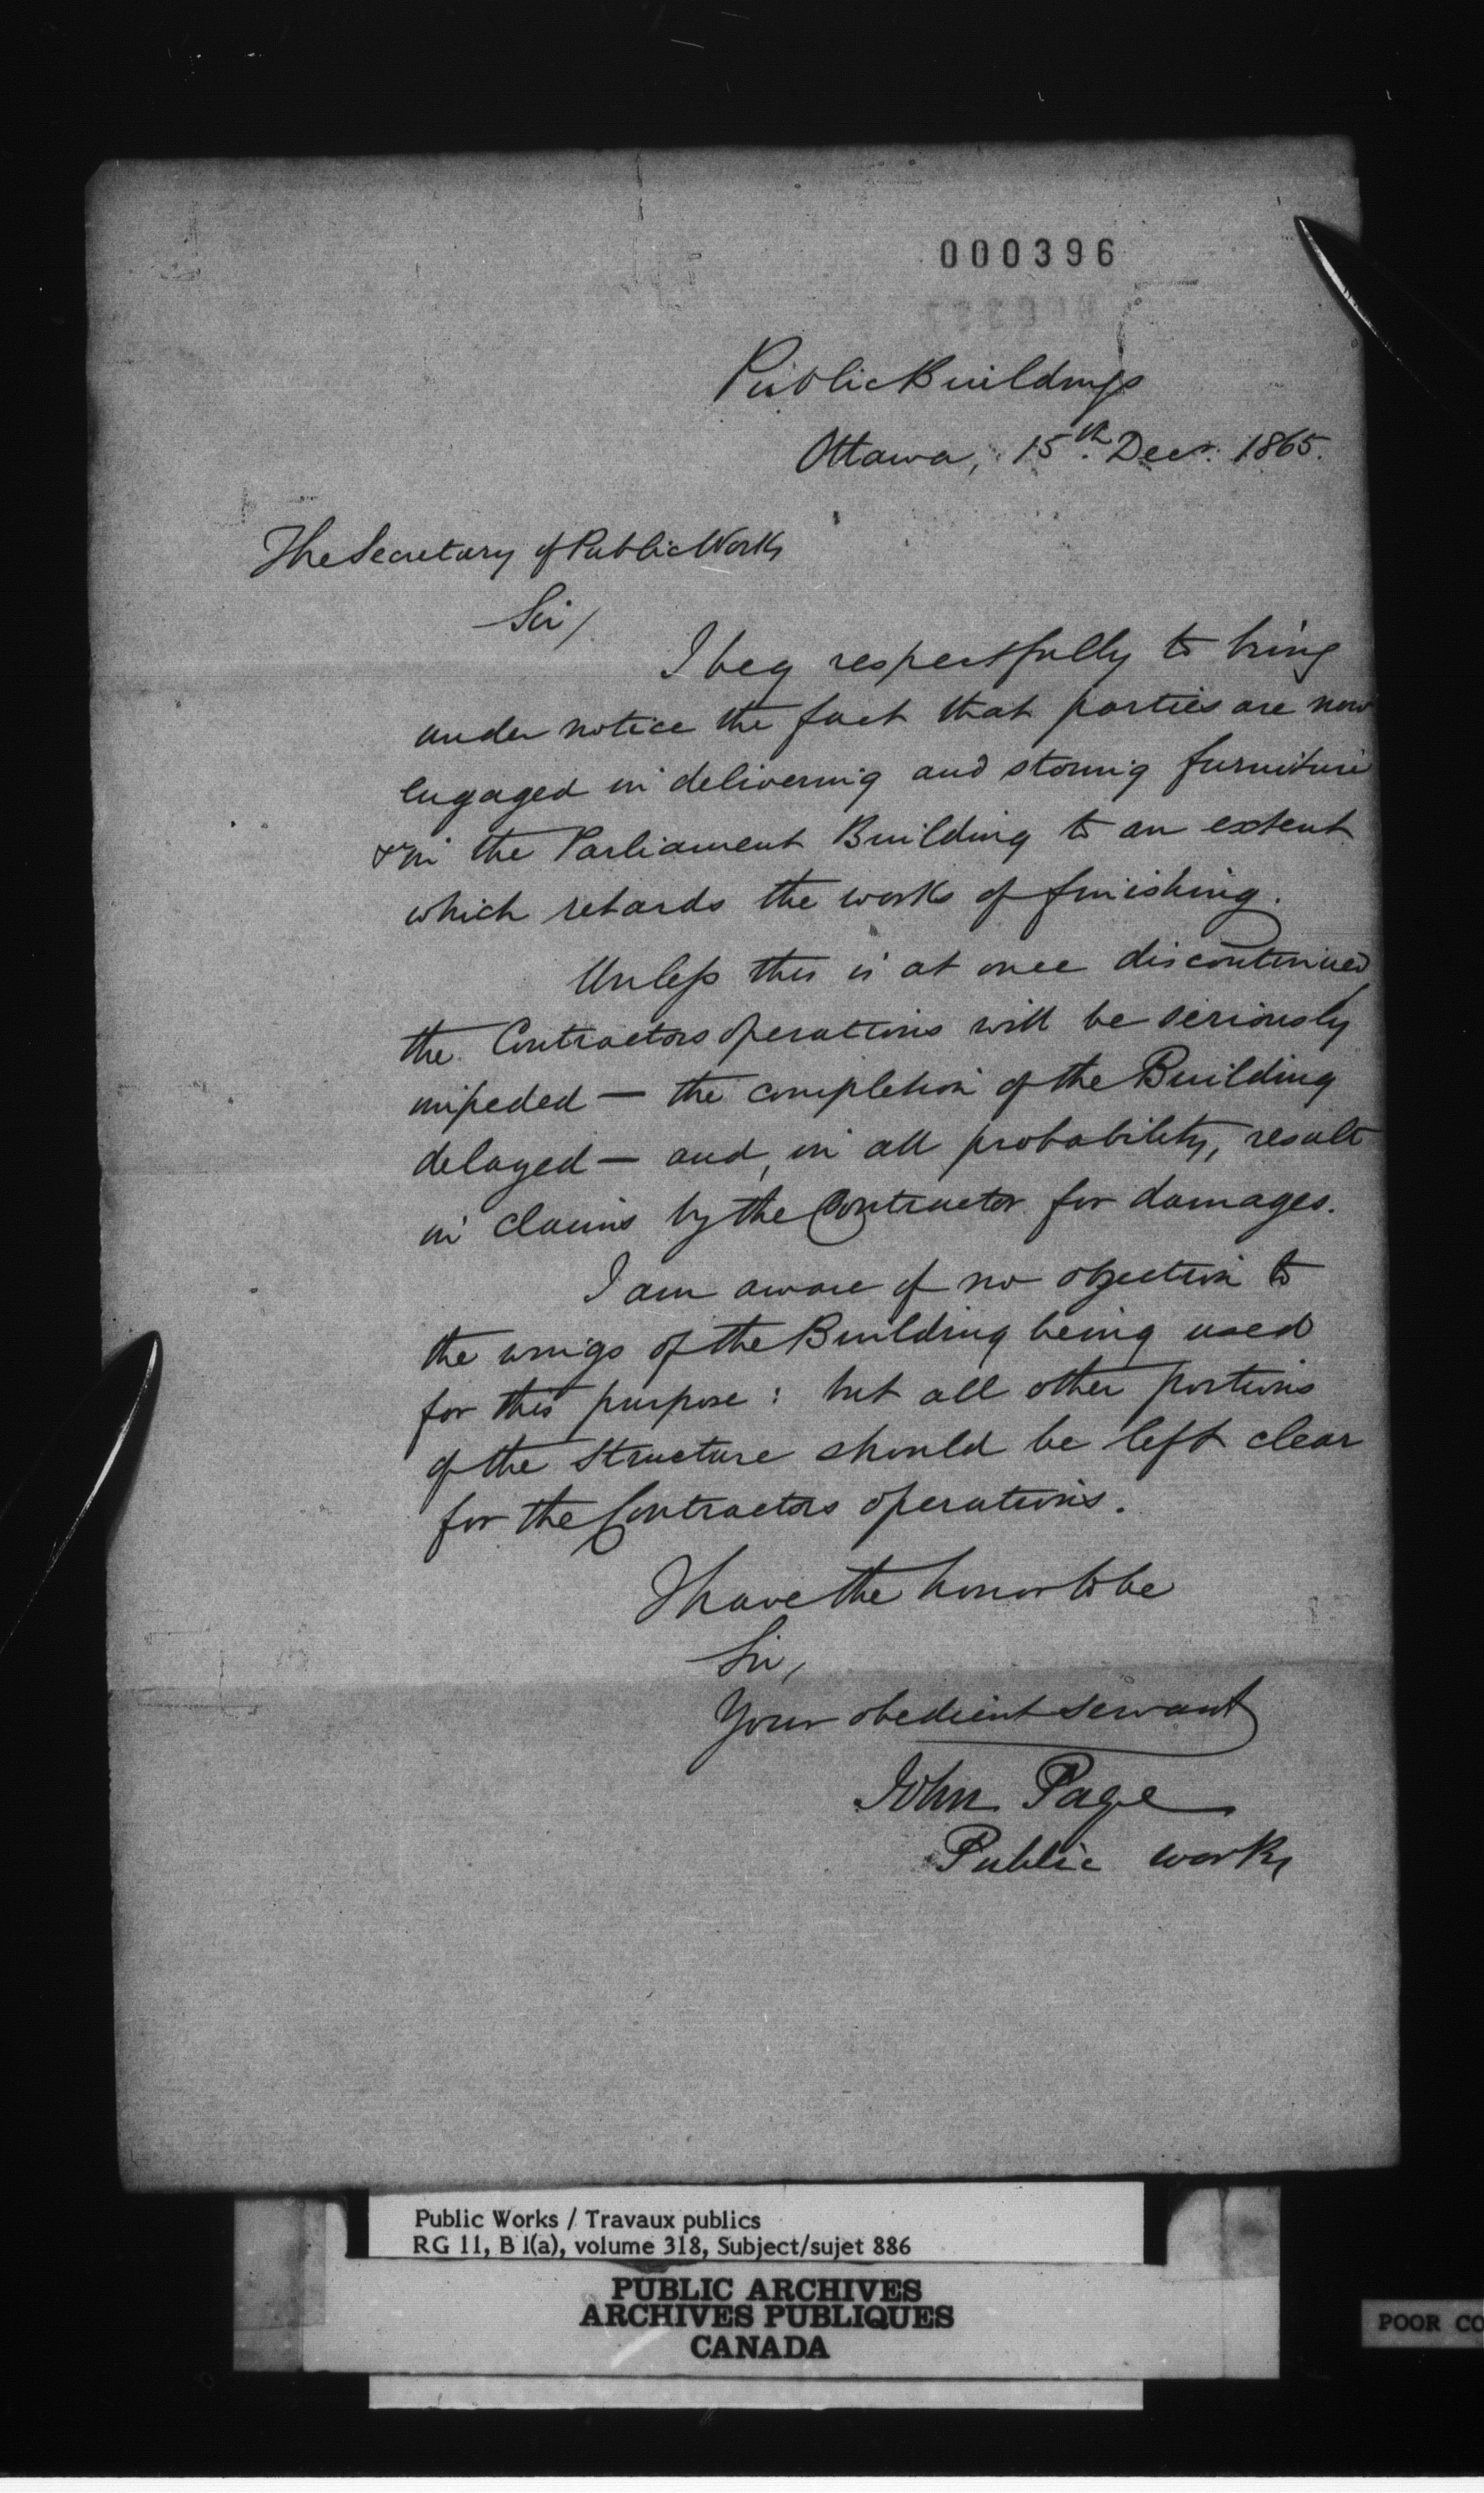 000396
Public Buildings
Ottawa, 15th. Decr. 1865.
The Secretary of Public Works
Sir/
I beg respectfully to bring
under notice the fact that parties are now
engaged in delivering and storing furniture
&c in the Parliament Building to an extent
which retards the works of finishing.
Unless this is at once discontinued
the Contractors operations will be seriously
impeded — the completion of the Building
delayed — and, in all probability, result
in claims by the Contractor for damages.
I am aware of no objection to
the wings of the Building being used
for this purpose: but all other portions
of the Structure should be left clear
for the Contractors operations.
I have the honor to be
Sir,
Your obedient servant
John Page
Public Works
Public Works / Travaux publics
RG 11, B 1(a), volume 318, Subject/sujet 886
PUBLIC ARCHIVES
ARCHIVES PUBLIQUES
CANADA
POOR CO